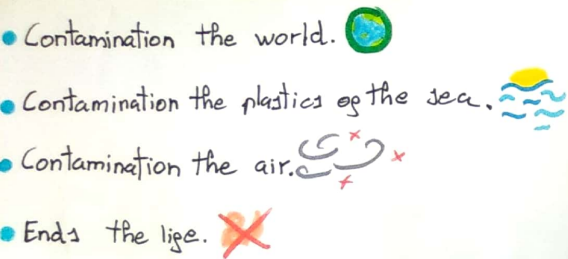 Contamination the world.
Contamination the plastics of the sea.
Contamination the air.
Ends the life.